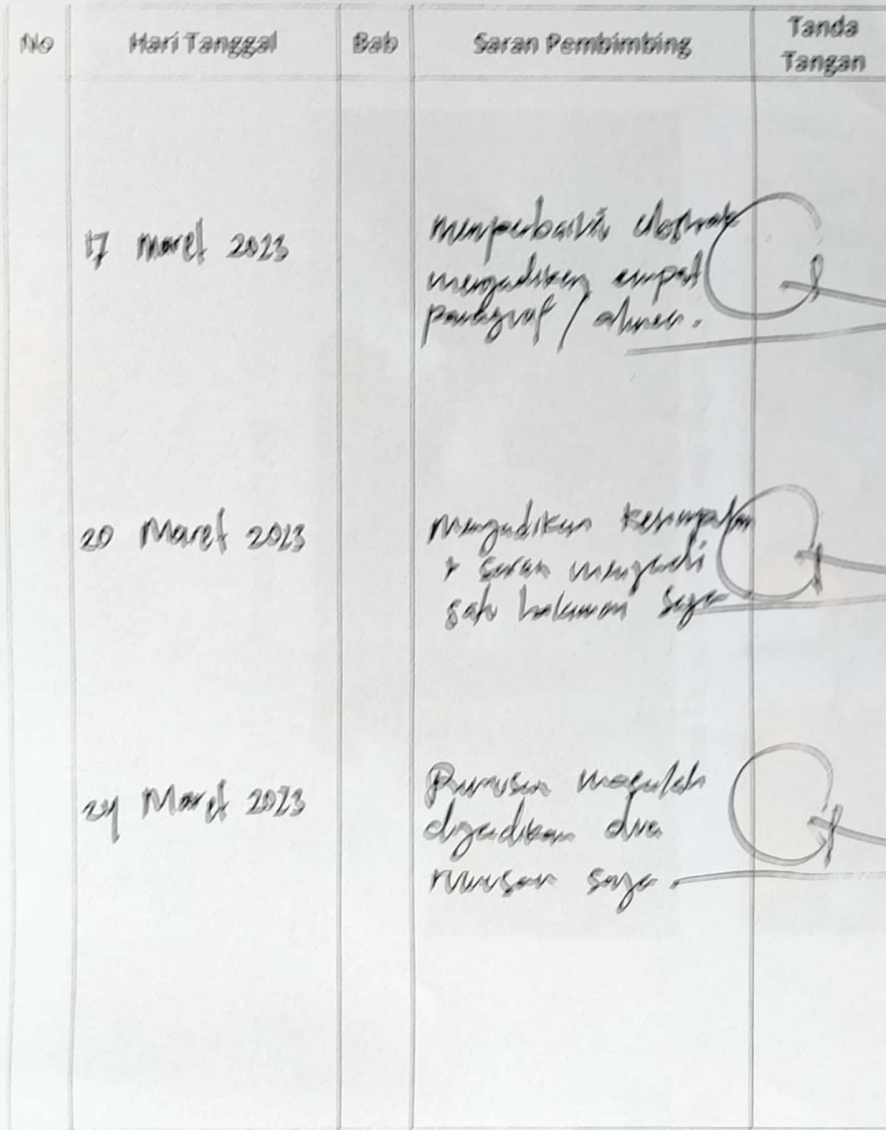 No Hari Tanggal Bab Saran Pembimbing Tanda Tangan
17 Maret 2023
memperbaiki abstrak
mengadikan empat
paragraf / alinea.
20 Maret 2023
mengadikan kesimpulan
+ saran mengadi
satu halaman saja
24 Maret 2023
Rumusan masalah
dijadikan dua
rumusan saja.